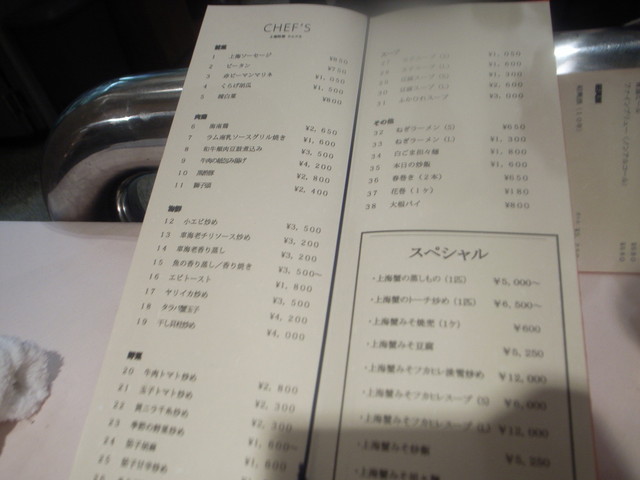 CHEF'S
前菜
1 上海ソーセージ ¥850
2 ピータン ¥750
3 赤ピーマンマリネ ¥1,050
4 くらげ ¥1,500
5 ¥800
肉類
6 ¥2,650
7 ラム腐乳ソースグリル焼き ¥1,800
8 和牛頬肉豆鼓煮込み ¥3,500
9 牛肉の紙包み揚げ ¥4,200
10 ¥2,800
11 獅子頭 ¥2,400
海鮮
12 小エビ炒め ¥3,500
13 車海老チリソース炒め ¥3,200
14 車海老香り蒸し ¥3,200
15 魚の香り蒸し/香り焼き ¥3,500~
16 エビトースト ¥1,800
17 ヤリイカ炒め ¥3,500
18 タラバ蟹玉子 ¥4,200
19 干し貝柱炒め ¥4,000
野菜
20 牛肉トマト炒め ¥2,800
21 玉子トマト炒め ¥2,300
22 黄ニラ干糸炒め ¥2,300
23 季節の野菜炒め ¥1,600~
24 茄子胡麻 ¥1,800
25 茄子甘辛炒め
スープ
¥1,050
¥1,800
¥1,300
30 スープ (L) ¥2,600
31 ふかひれスープ ¥3,000
その他
32 ねぎラーメン (S) ¥650
33 ねぎラーメン (L) ¥1,300
34 白ごま担々麺 ¥1,800
35 本日の炒飯 ¥1,600
36 春巻き (2本) ¥650
37 花巻 (1ケ) ¥180
38 大根パイ ¥800
スペシャル
・上海蟹の蒸しもの (1匹) ¥5,000~
・上海蟹のトーチ炒め (1匹) ¥6,500~
・上海蟹みそ焼売 (1ケ) ¥600
・上海蟹みそ豆腐 ¥5,250
・上海蟹みそフカヒレ掛雪炒め ¥12,000
・上海蟹みそフカヒレスープ (S) ¥6,000
・上海蟹みそフカヒレスープ (L) ¥12,000
・上海蟹みそ炒飯 ¥5,250